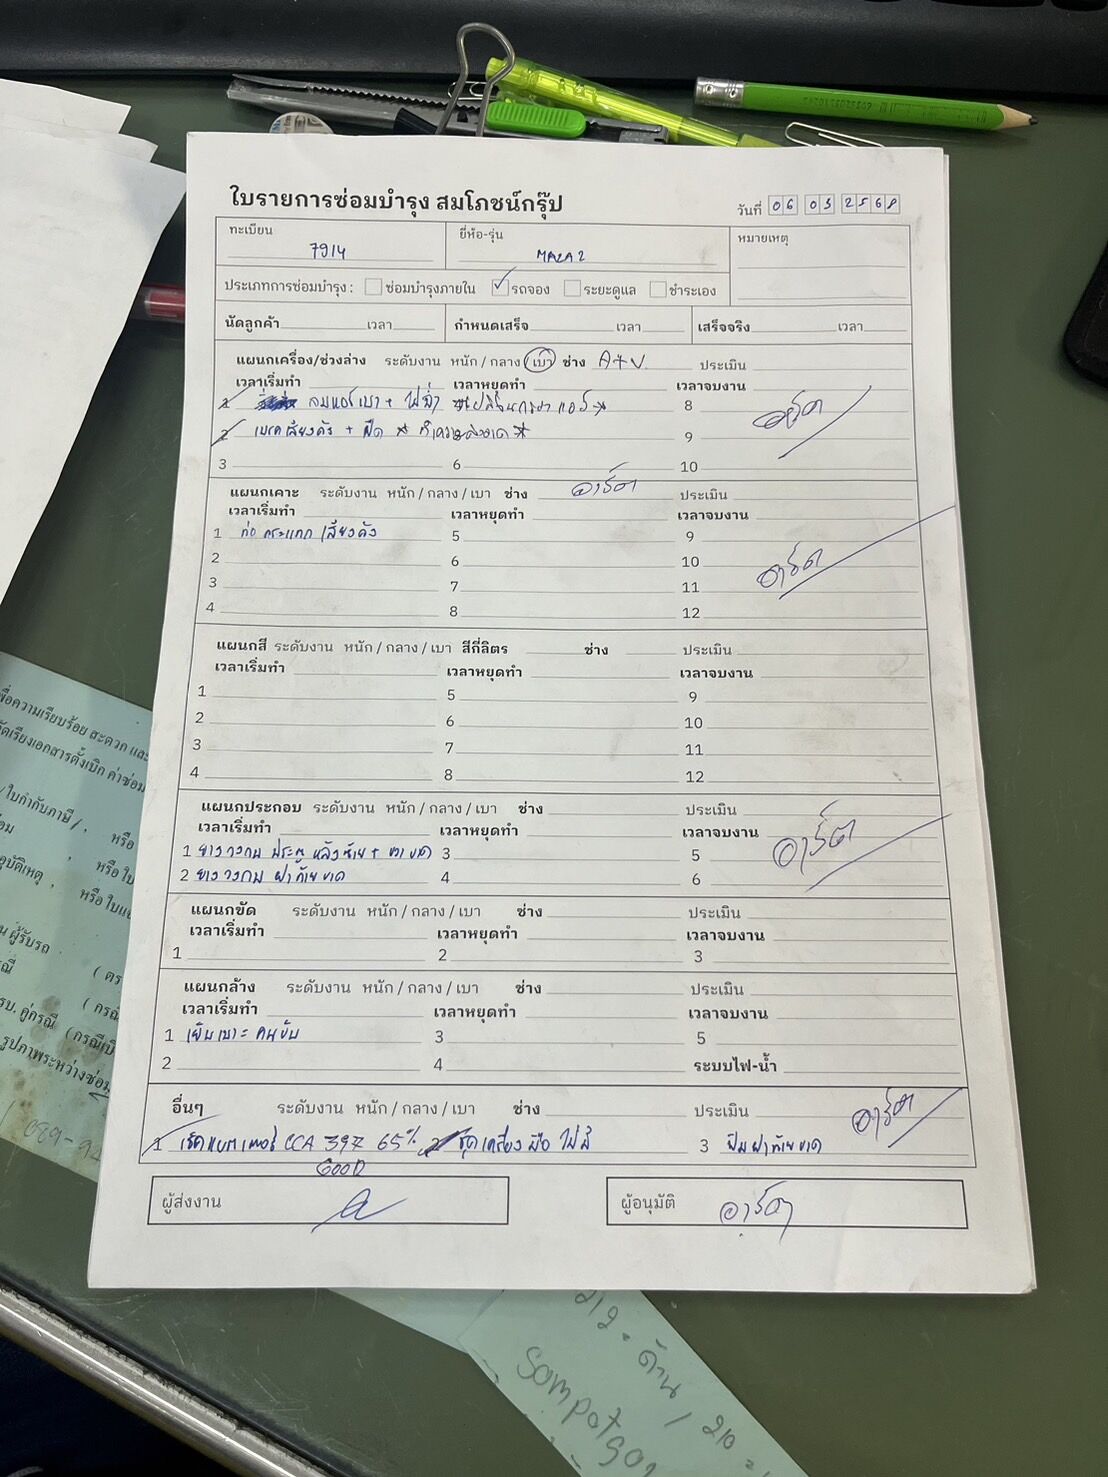 ใบรายการซ่อมบำรุง สมโภชน์กรุ๊ป
วันที่ 06 03 2568
ทะเบียน 7914
ยี่ห้อ-รุ่น MAZA2
หมายเหตุ
ประเภทการซ่อมบำรุง : ซ่อมบำรุงภายใน ✓ รถจอง ระยะดูแล ชำระเอง
นัดลูกค้า เวลา กำหนดเสร็จ เวลา เสร็จจริง เวลา
แผนกเครื่อง/ช่วงล่าง ระดับงาน หนัก / กลาง / เบา ช่าง A+V ประเมิน
เวลาเริ่มทำ เวลาหยุดทำ เวลาจบงาน
1 ลมแอร์เบา + ไม่ฉ่ำ 8
2 เบรคเสียงดัง + ฝืด ทำความสะอาด 9
3 6 10
แผนกเคาะ ระดับงาน หนัก / กลาง / เบา ช่าง อาร์ต ประเมิน
เวลาเริ่มทำ เวลาหยุดทำ เวลาจบงาน
1 ท่อ กระแทก เสียงดัง 5 9
2 6 10
3 7 11
4 8 12
อาร์ต
แผนกสี ระดับงาน หนัก / กลาง / เบา สีกี่ลิตร ช่าง ประเมิน
เวลาเริ่มทำ เวลาหยุดทำ เวลาจบงาน
1 5 9
2 6 10
3 7 11
4 8 12
แผนกประกอบ ระดับงาน หนัก / กลาง / เบา ช่าง ประเมิน
เวลาเริ่มทำ เวลาหยุดทำ เวลาจบงาน
1 ยางวงกบ ประตู หลังซ้าย + ขวา ขาด 3 5
2 ยางวงกบ ฝาท้าย ขาด 4 6
อาร์ต
แผนกขัด ระดับงาน หนัก / กลาง / เบา ช่าง ประเมิน
เวลาเริ่มทำ เวลาหยุดทำ เวลาจบงาน
1 2 3
แผนกล้าง ระดับงาน หนัก / กลาง / เบา ช่าง ประเมิน
เวลาเริ่มทำ เวลาหยุดทำ เวลาจบงาน
1 เย็บเบาะ คนขับ 3 5
2 4 ระบบไฟ-น้ำ
อื่นๆ ระดับงาน หนัก / กลาง / เบา ช่าง ประเมิน อาร์ต
1 เช็คแบตเตอรี่ CCA 397 65% 2 ชุดเครื่องมือ ไม่มี 3 ฝาท้ายขาด
GOOD
ผู้ส่งงาน
ผู้อนุมัติ อาร์ต
พื่อความเรียบร้อย สะดวก และ
จัดเรียงเอกสารตั้งเบิก ค่าซ่อม
ใบกำกับภาษี / , หรือ
หรือ ใบ
อุบัติเหตุ , หรือ ใบแ
ผู้รับรถ . ( ตร
( กรณี
รบ. คู่กรณี (กรณีเป็
รูปภาพระหว่างซ่อม
212. ด้าน / 210
Sompot